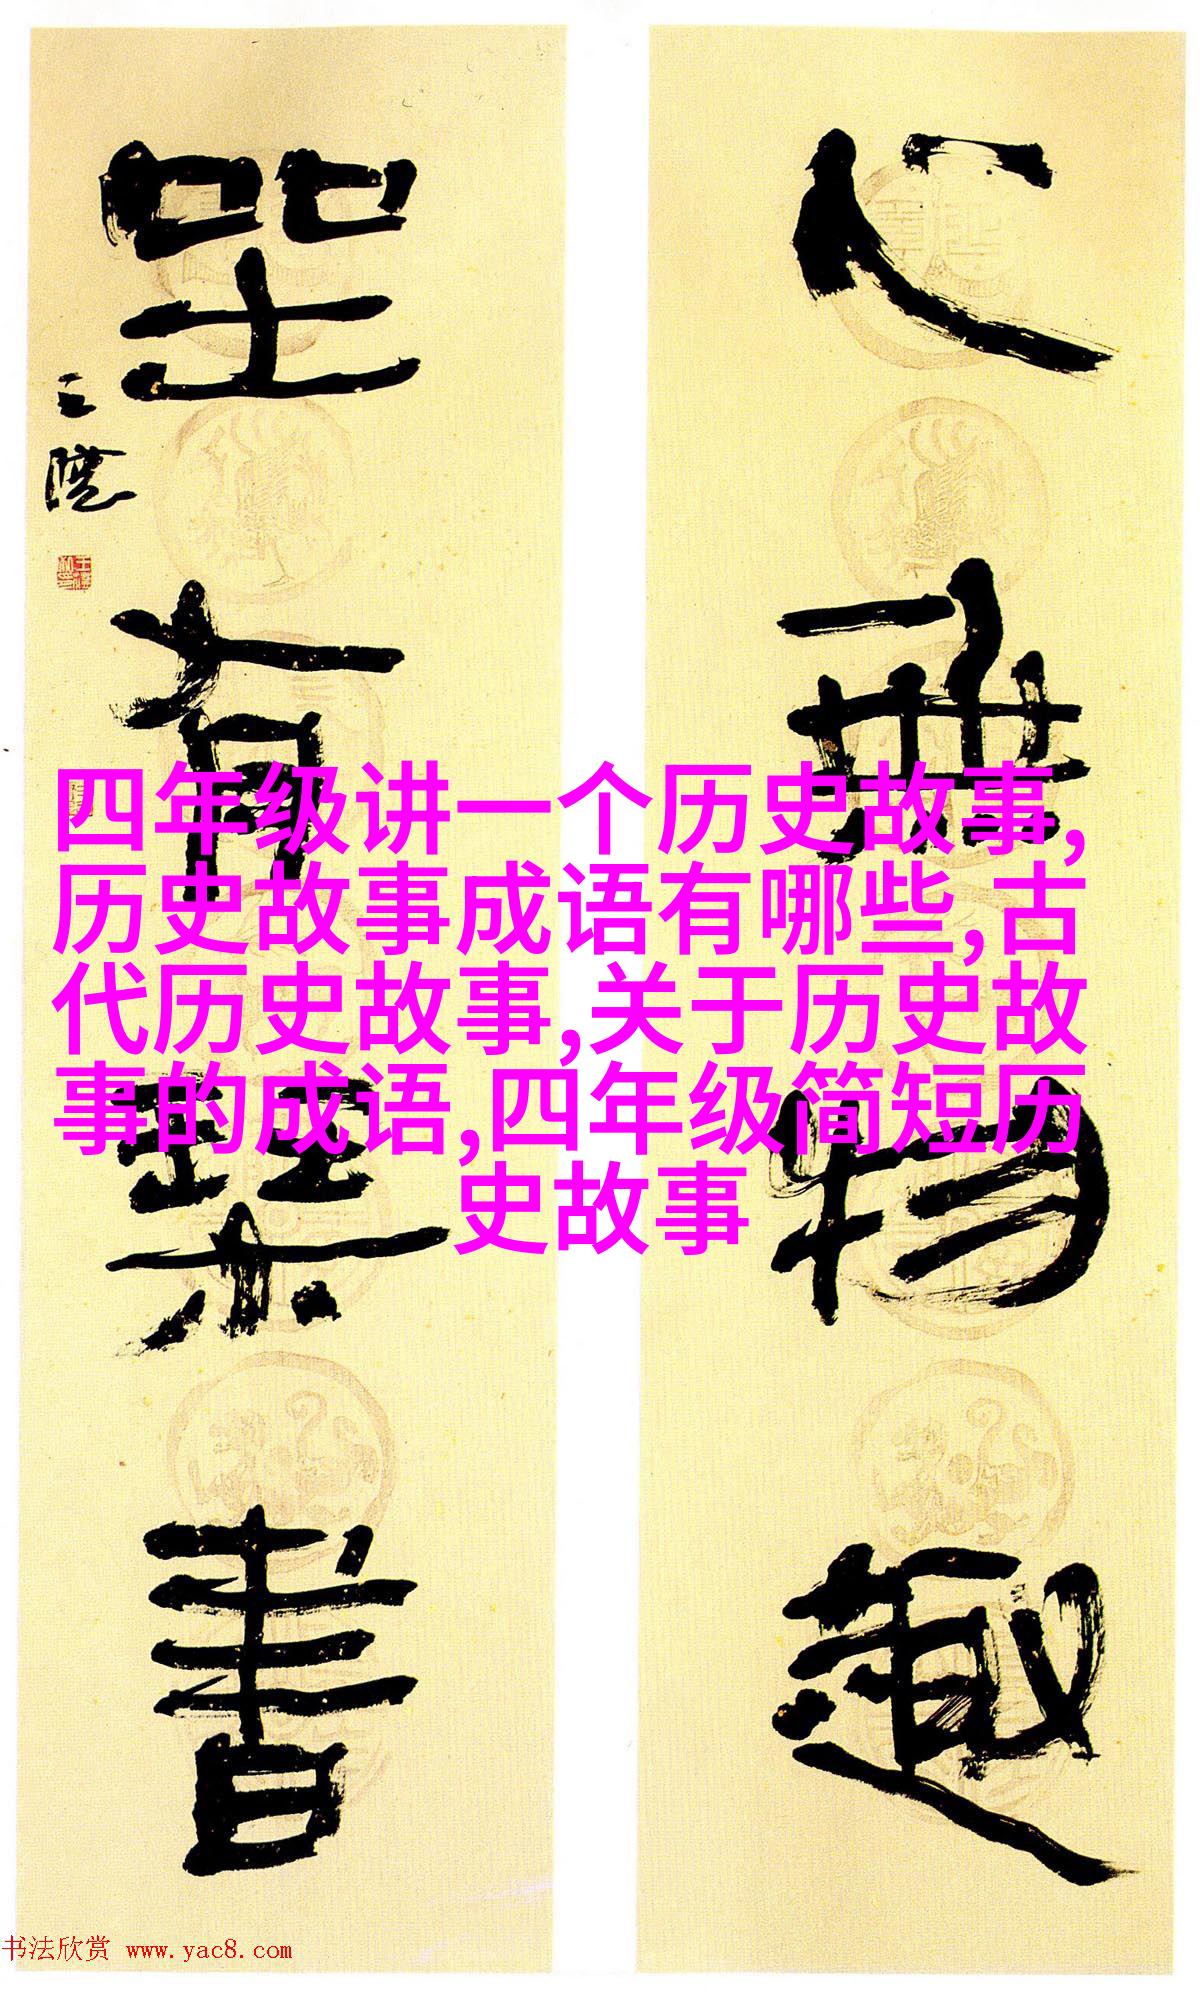 心無物趣
坐有琴書
王镛
四年级讲一个历史故事,
历史故事成语有哪些,古
代历史故事,关于历史故
事的成语,四年级简短历
史故事
书法欣赏 www.yac8.com